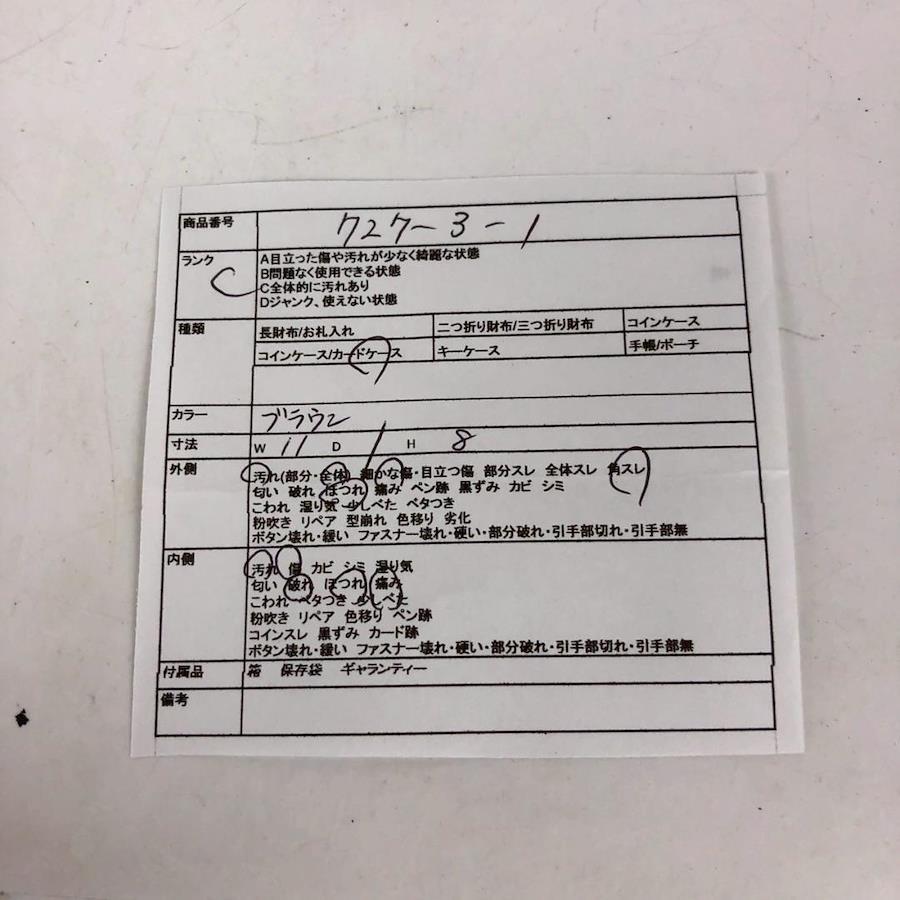 商品番号 727-3-1
ランク C A目立った傷や汚れが少なく綺麗な状態
B問題なく使用できる状態
C全体的に汚れあり
Dジャンク、使えない状態
種類 長財布/お札入れ 二つ折り財布/三つ折り財布 コインケース
コインケース/カードケース キーケース 手帳/ポーチ
カラー ブラウン
寸法 W 11 D 1 H 8
外側 汚れ(部分・全体) 細かな傷・目立つ傷 部分スレ 全体スレ 角スレ
匂い 破れ ほつれ 痛み ペン跡 黒ずみ カビ シミ
こわれ 湿り気 少しべた ベタつき
粉吹き リペア 型崩れ 色移り 劣化
ボタン壊れ・緩い ファスナー壊れ・硬い・部分破れ・引手部切れ・引手部無
内側 汚れ 傷 カビ シミ 湿り気
匂い 破れ ほつれ 痛み
こわれ ベタつき 少しべた
粉吹き リペア 色移り ペン跡
コインスレ 黒ずみ カード跡
ボタン壊れ・緩い ファスナー壊れ・硬い・部分破れ・引手部切れ・引手部無
付属品 箱 保存袋 ギャランティー
備考